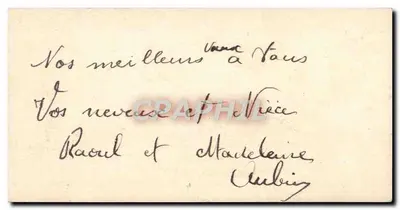 Nos meilleurs vœux à vous
Vos neveux et Nièce
Raoul et Madeleine
Aubin